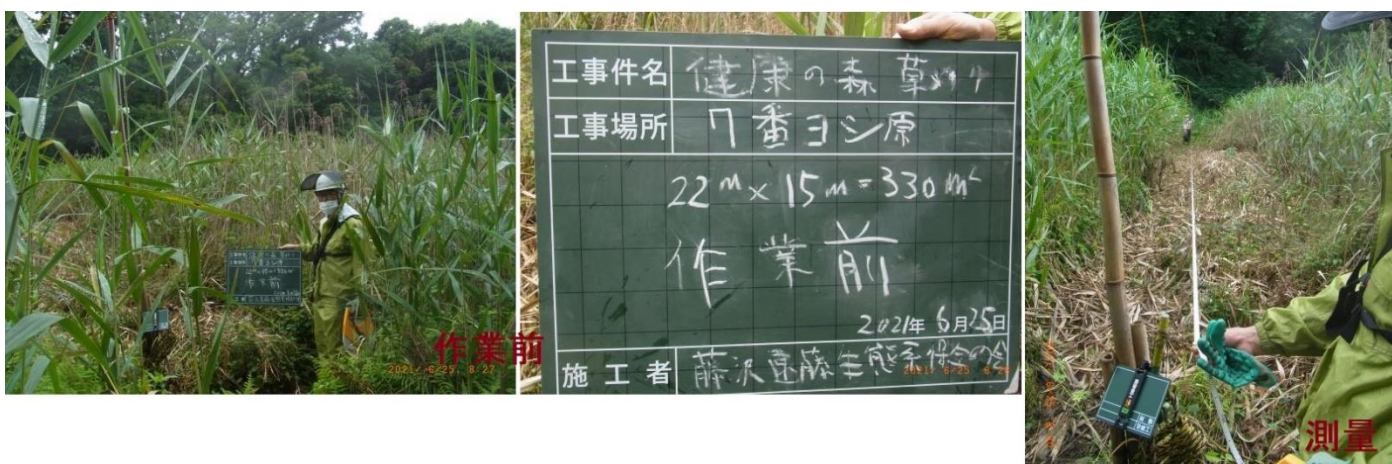 作業前
2021/ 6/25 8:27
工事件名 健康の森 草刈り
工事場所 7番ヨシ原
22m×15m=330m²
作業前
2021年 6月25日
施工者 藤沢遠藤生態系保全の会
2021/ 6/25
測量